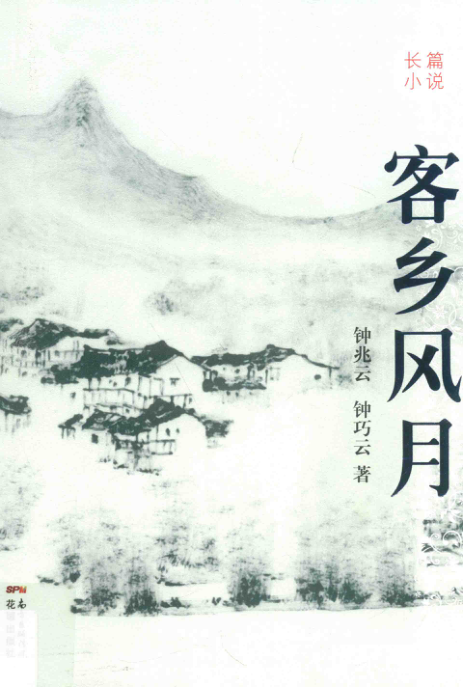 长篇
小说
客乡风月
钟兆云 钟巧云 著
SPM
南
花